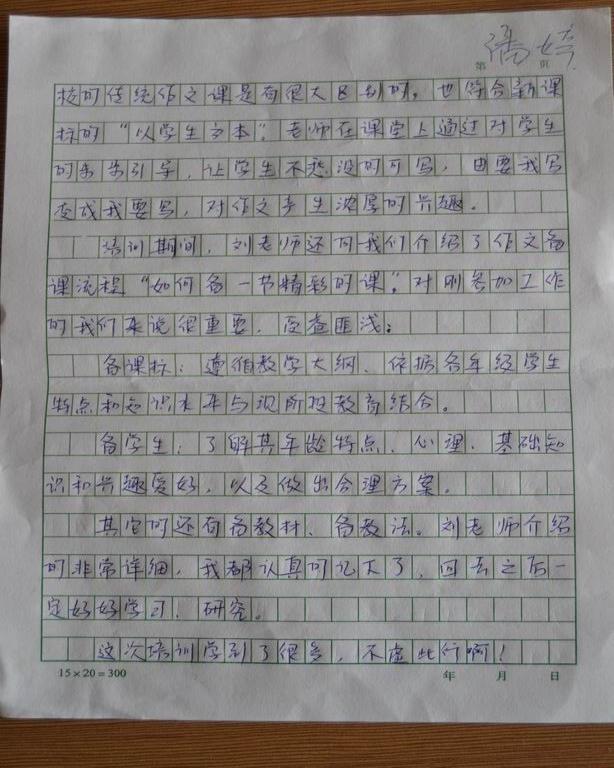 潘婷
第 页
校的传统作文课是有很大区别的。也符合新课
标的“以学生为本”。老师在课堂上通过对学生
的步步引导,让学生不愁没的可写,由要我写
变成我要写,对作文产生浓厚的兴趣。
培训期间,刘老师还向我们介绍了作文备
课流程“如何备一节精彩的课”。对刚参加工作
的我们来说很重要,受益匪浅:
备课标:遵循教学大纲、依据各年级学生
特点和知识水平与现阶段教育结合。
备学生:了解其年龄特点、心理、基础知
识和兴趣爱好,以及做出合理方案。
其它的还有备教材、备教法。刘老师介绍
的非常详细,我都认真的记下了,回去之后一
定好好学习、研究。
这次培训学到了很多,不虚此行啊!
15×20=300 年 月 日